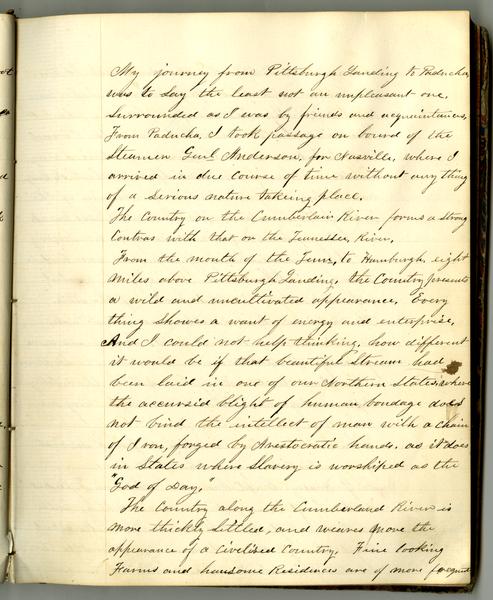 My journey from Pittsburgh Landing to Paducha,
was to say the least not an unpleasant one,
surrounded as I was by friends and acquaintances,
From Paducha, I took passage on board of the
Steamer Genl Anderson, for Nasville, where I
arrived in due course of time without any thing
of a serious nature takeing place.
The Country on the Cumberlain River forms a strong
Contras with that on the Tennessee, River,
From the mouth of the Tenn, to Hamburgh, eight
miles above Pittsburgh Landing, the Country presents
a wild and uncultivated appearance, Every
thing showes a want of energy and enterprise,
And I could not help thinking, how different
it would be if that beautiful Stream had
been laid in one of our Northern States, where
the accursid blight of human bondage does
not bind the intellect of man with a Chain
of Iron, forged by Arestocratic hands, as it does
in States where Slavery is worshiped as the
"God of Day,"
The Country along the Cumberland River is
more thickly settled, and weares more the
appearance of a Civelised Country, Fine looking
Farms and hansome Residences are of more frequent